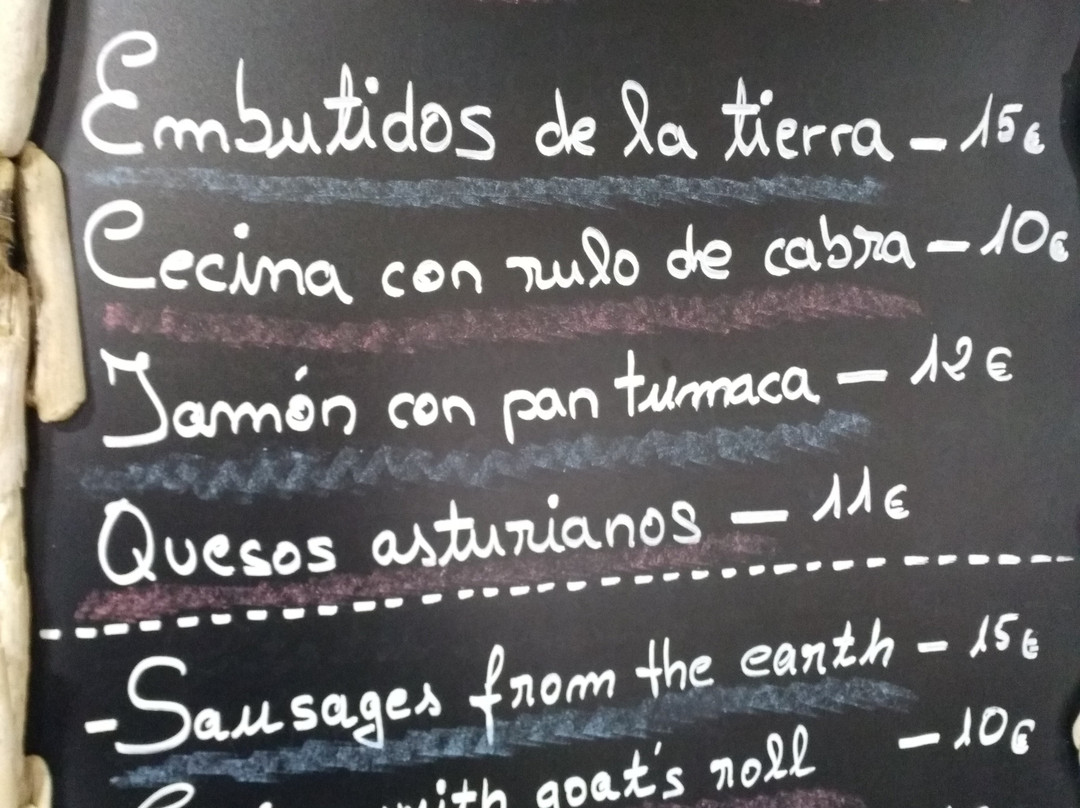 Embutidos de la tierra - 15€
Cecina con rulo de cabra - 10€
Jamón con pan tumaca - 12€
Quesos asturianos - 11€
- Sausages from the earth - 15€
with goat's roll - 10€